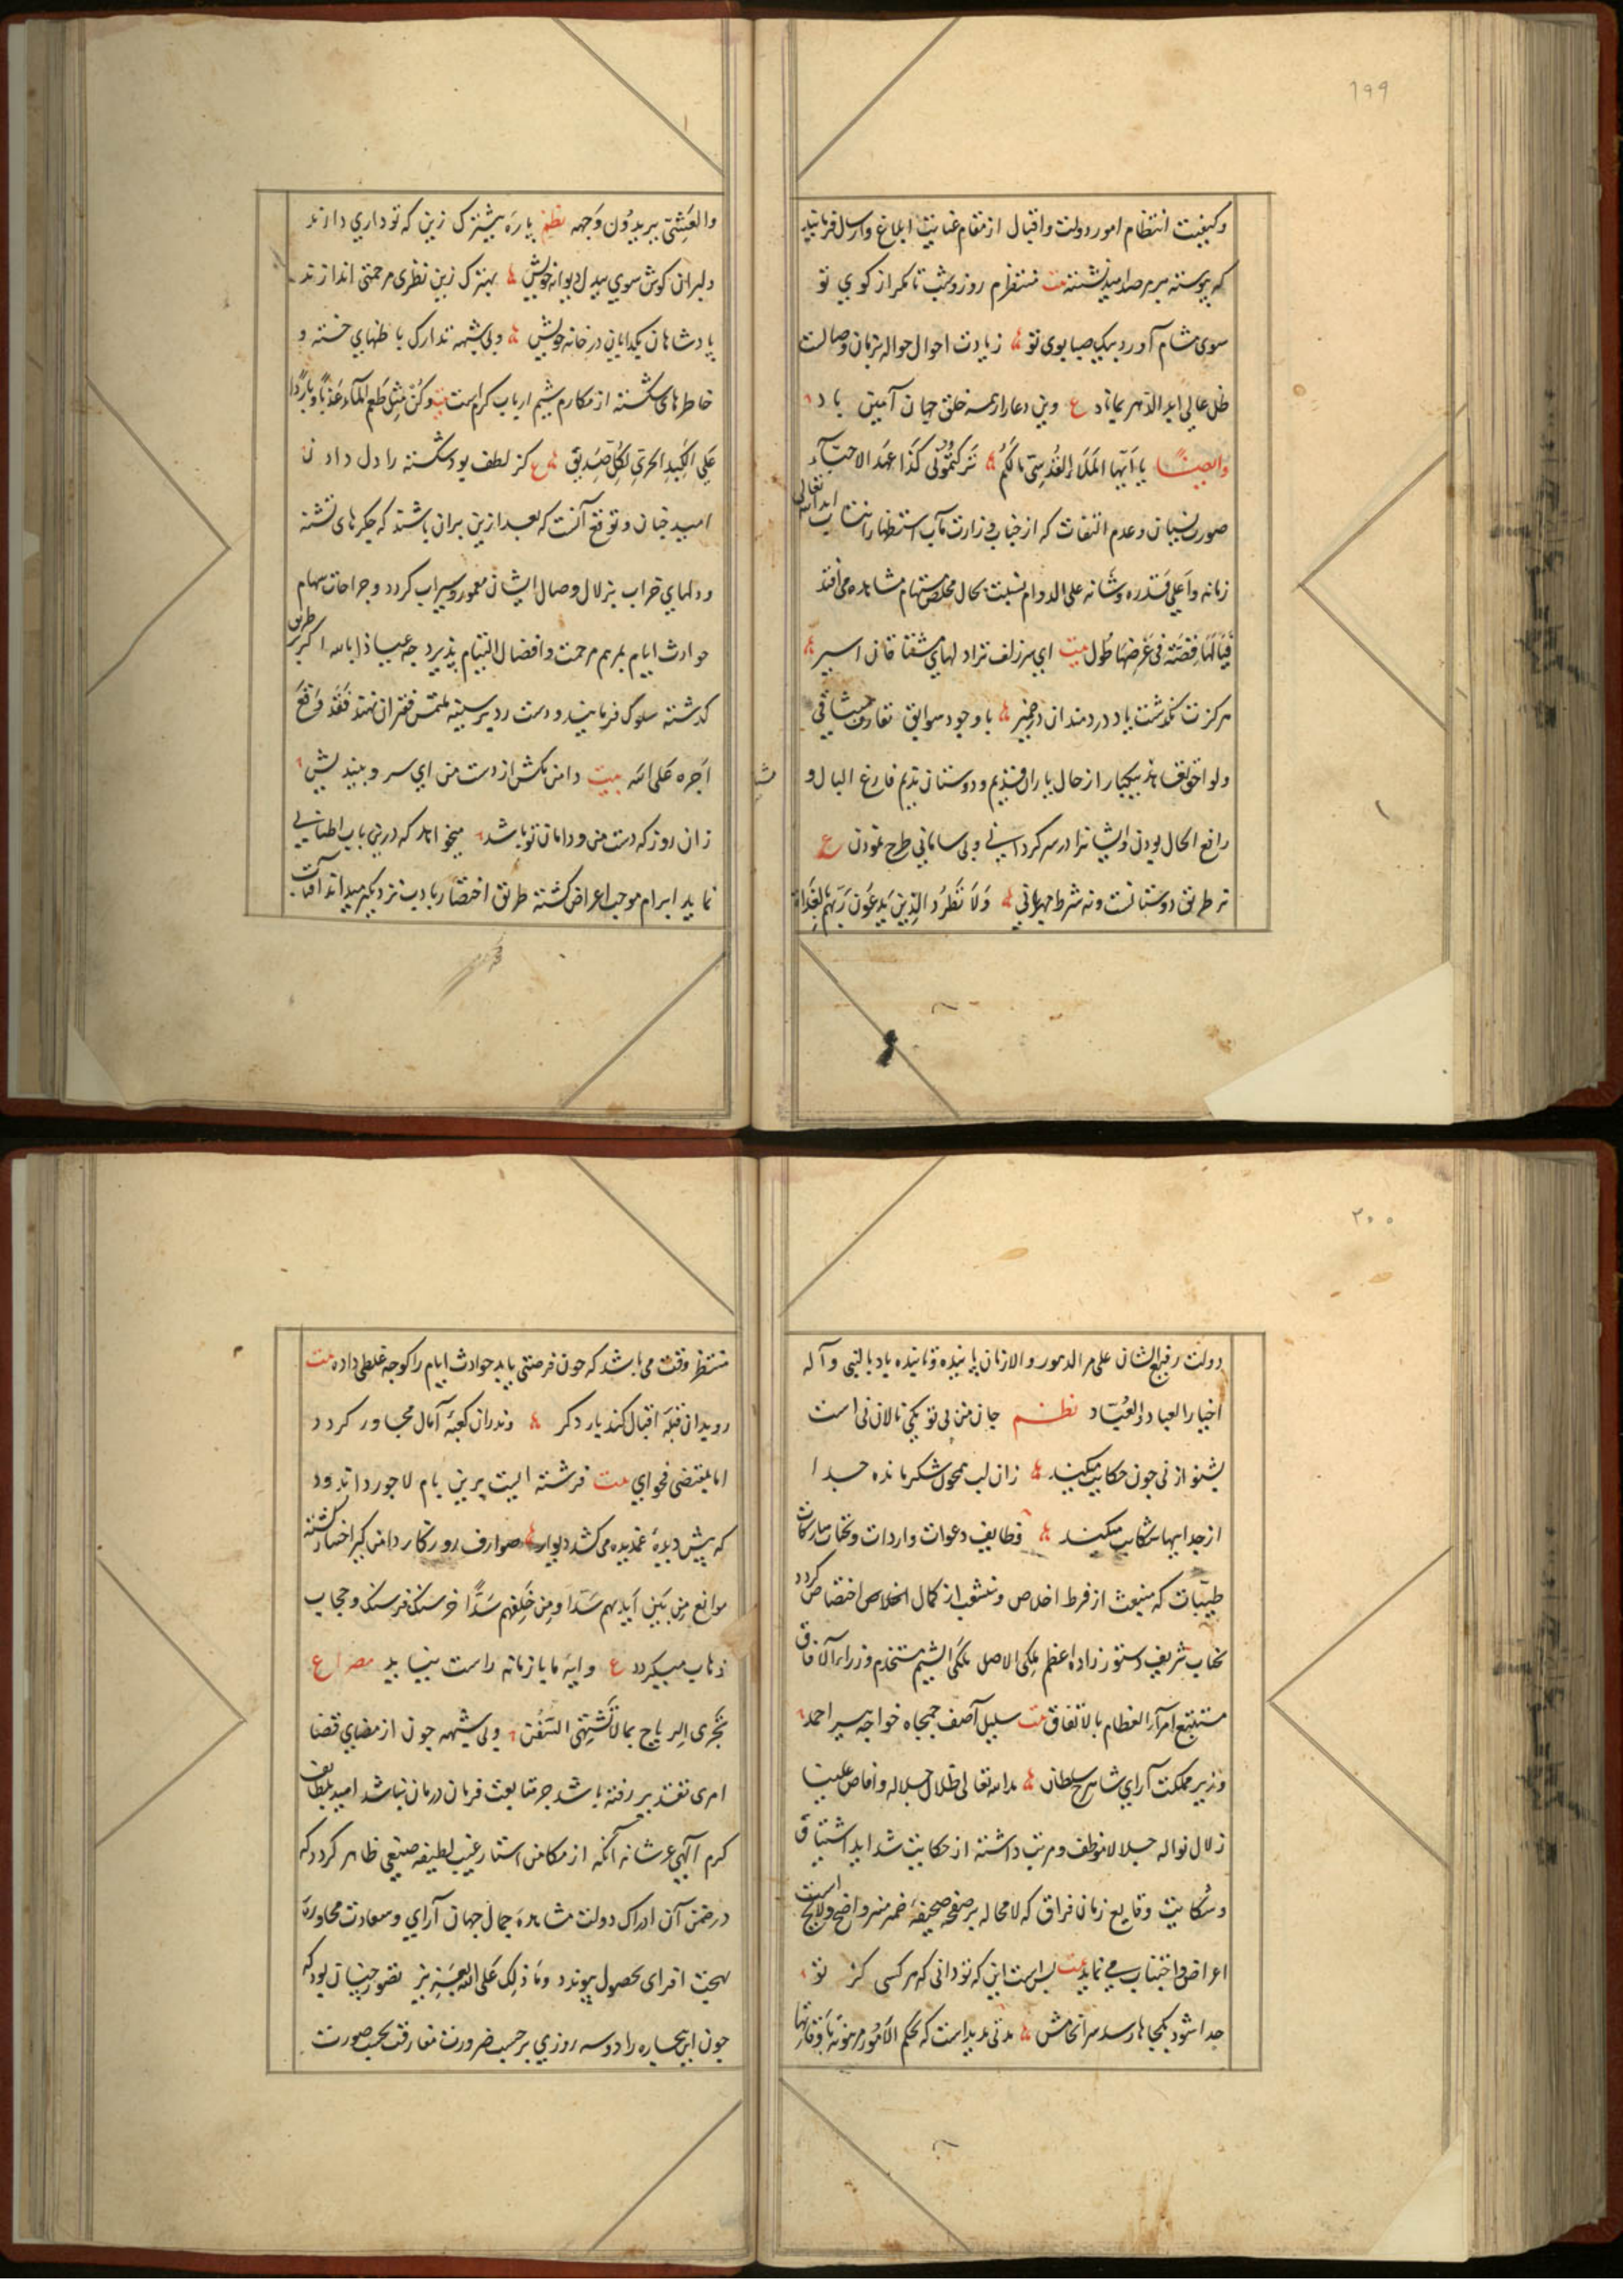 ۱۹۹
وکیفیت انتظام امور دولت واقبال از مقام عنایت ابلاغ وارسال فرمایند
که پیوسته بر مرصد امید نشسته بیت منتظرم روز وشب تا مکر از کوی تو
سوی مشام آورد پیک صبا بوی تو زیادت احوال حواله بزمان وصالست
ظل عالی ابد الدهر بماناد ع وین دعا را از همه خلق جهان آمین باد
وایضا یا ایها الملاء القدسی مالکم ترکتمونی کذا عهد الاحباء
صورت نسیان وعدم التفات که از جناب وزارت مآب استظهار
زمانه واعلی قدره وشانه علی الدوام نسبت بحال مخلص مستهام مشاهده می افتد
فیالها قصة فی عرضها طول بیت ای سر زلف ترا دلهای مشتاقان اسیر
هرکزت نکذشت یاد دردمندان در ضمیر با وجود سوابق تعارف میثاقی
ولواحق بیکبار از حال یاران قدیم ودوستان ندیم فارغ البال و
رافع الحال بودن وایشانرا در سرکردانی وبی سامانی طرح نمودن ع
نه طریق دوستانست ونه شرط مهربانی ولا تطرد الذین یدعون ربهم بالغداة
والعشی یریدون وجهه نظم پاره بیشترک زین که توداری دارند
دلبران کوش سوی بیدل دیوانه خویش بهترک زین نظری مرحمتی اندازند
پادشاهان بکدایان در خانه خویش وبی شبهه تدارک باطنهای خسته و
خاطرهای شکسته از مکارم شیم ارباب کرامست بیت وکن مثل طعم الماء عذبا وباردا
علی الکبد الحری لکل صدیق ع کز لطف بود شکسته را دل دادن
امید چنان وتوقع آنست که بعد ازین بران باشند که جکرهای تشنه
ودلهای خراب بزلال وصال ایشان معمور وسیراب کردد وجراحات سهام
حوادث ایام بمرهم مرحمت وافضال التیام پذیرد چه عیاذا بالله اکر بر طریق
کذشته سلوک فرمایند ودست رد بر سینه ملتمس فقرا نهند فقد وقع
اجره علی الله بیت دامن مکش از دست من ای سرو بیندیش
زان روز که دست من ودامان تو باشد میخواهد که درین باب اطنابی
نماید ابرام موجب اعراض کشته طریق اختصار بادب نزدیکتر میداند آفتاب
۲۰۰
دولت رفیع الشان علی مر الدهور والازمان پاینده وتابنده باد بالنبی وآله
اخیار العباد والعباد نظم جان من بی تو یکی نالان نی است
بشنو از نی چون حکایت میکند زان لب همچون شکر مانده جدا
از جداییها شکایت میکند وظایف دعوات واردات وتحیات مبارکات
طیبات که منبعث از فرط اخلاص ومنشعب از کمال اختصاص کردد
بجناب شریف دستور زاده اعظم ملکی الاصل ملکی الشیم مستخدم وزراء الآفاق
مستتبع امراء العظام بالاتفاق بیت سلیل آصف جمجاه خواجه پیر احمد
وزیر مملکت آرای شاهرخ سلطان مد الله تعالی ظلال جلاله وافاض علینا
زلال نواله جلالا موظف ومرتب داشته از حکایت شداید اشتیاق
وشکایت وقایع زمان فراق که لامحاله بر صفحه صحیفه ضمیر منیر واضح ولایح است
اعراض واجتناب می نماید بیت بس است این که تو دانی که هر کسی کز تو
جدا شود بکجاها رسد سرانجامش مدتی مدید است که بحکم الامور مرهونة باوقاتها
منتظر وقت می باشد که چون فرصتی یابد حوادث ایام را کوچه غلطی داده بیت
رو بدان قبله اقبال کند بار دکر وندران کعبه آمال مجاور کردد
اما بمقتضی فحوای بیت فرشته ایست برین بام لاجورد اندود
که پیش دیده غمدیده می کشد دیوار صوارف روزکار دامن کیر اختیار کشته
موانع من بین ایدیهم سدا ومن خلفهم سدا خرسنک فرسنک وحجاب
ذهاب میکردد ع وایه ما با زمانه راست نیاید مصراع
تجری الریاح بما لا تشتهی السفن وبی شبهه چون از مضای قضا
امری تقدیر رفته باشد جز متابعت فرمان درمان نباشد امید بلطایف
کرم آلهی عز شانه آنکه از مکامن استار غیب لطیفه صنیعی ظاهر کردد که
در ضمن آن ادراک دولت مشاهده جمال جهان آرای وسعادت محاوره
بهجت افزای بحصول پیوندد وما ذلک علی الله بعزیز تصور چنان بود که
چون این بیچاره را دوسه روزی بر حسب ضرورت مفارقت بحسب صورت